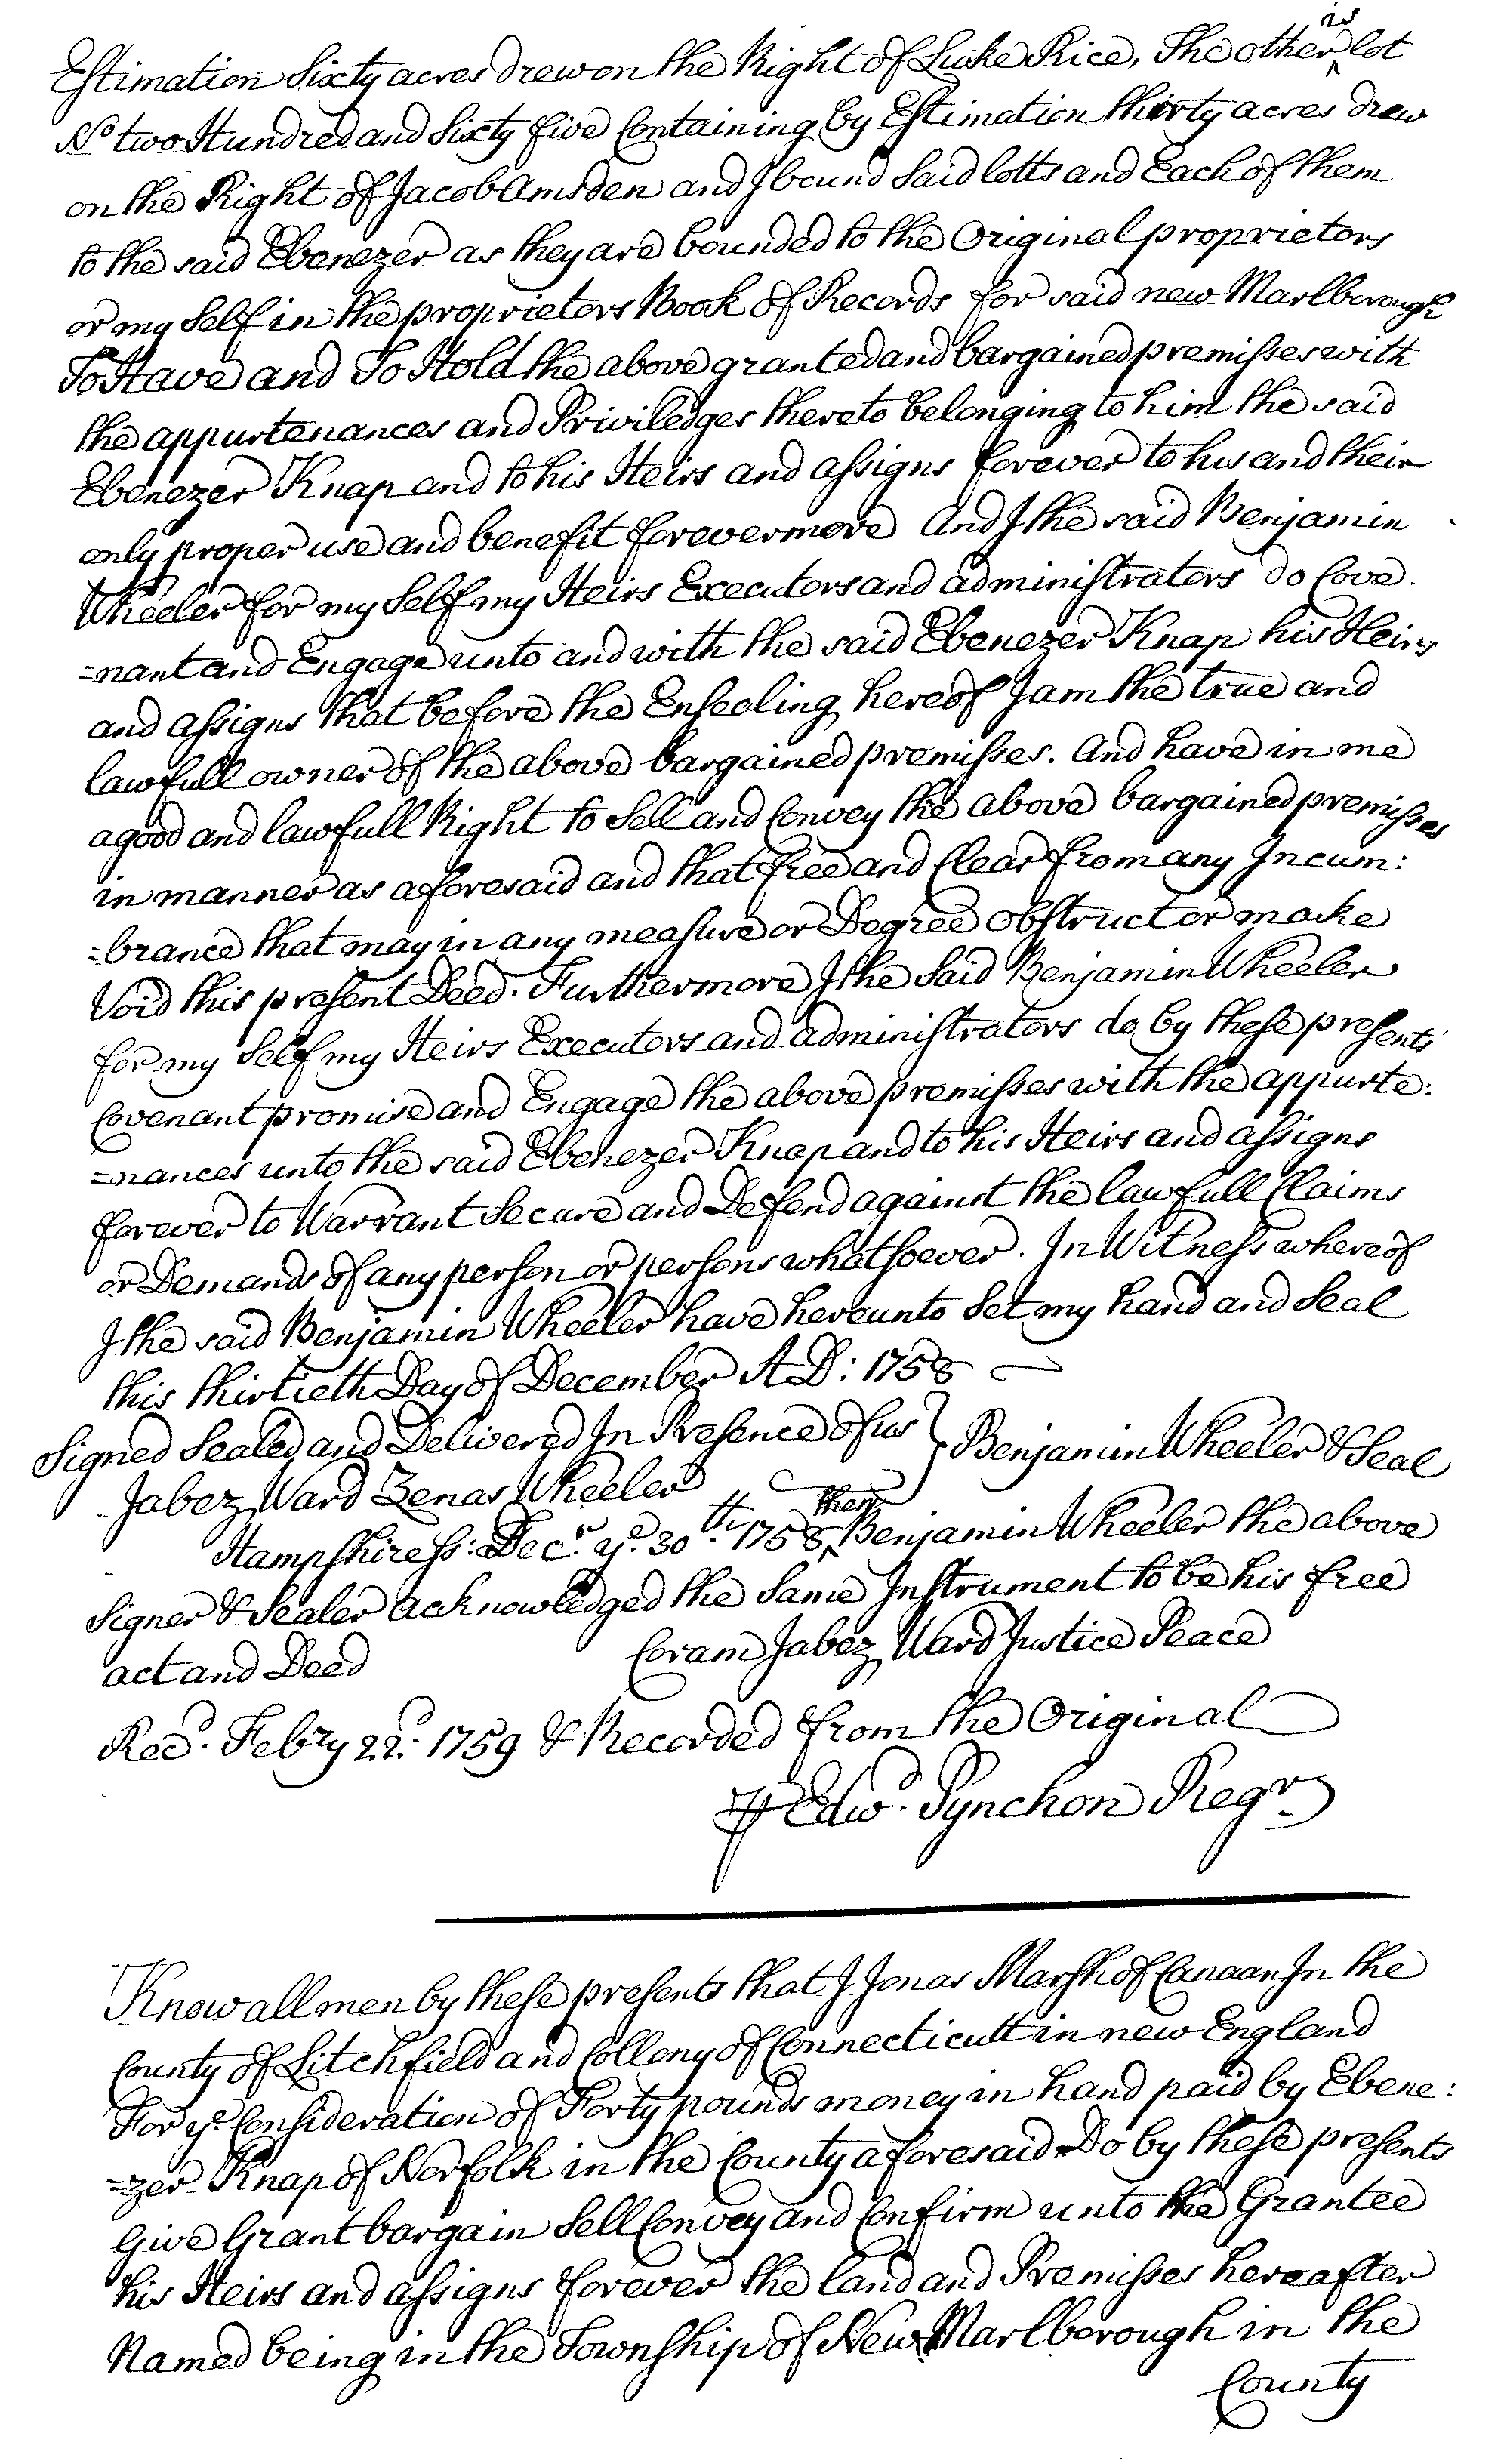 Estimation Sixty acres drew on the Right of Luke Rice, The other is lot
No two Hundred and Sixty five Containing by Estimation thirty acres drew
on the Right of Jacob Amsden and I bound Said lotts and Each of them
to the said Ebenezer as they are bounded to the Original proprietors
or my Self in the proprietors Book of Records for said new Marlborough
To Have and To Hold the above granted and bargained premisses with
the appurtenances and Priviledges thereto belonging to him the said
Ebenezer Knap and to his Heirs and assigns forever to his and their
only proper use and benefit forevermore And I the said Benjamin
Wheeler for my Self my Heirs Executors and administrators do Cove.
=nant and Engage unto and with the said Ebenezer Knap his Heirs
and assigns that before the Ensealing hereof I am the true and
lawfull owner of the above bargained premisses. And have in me
a good and lawfull Right to Sell and Convey the above bargained premisses
in manner as aforesaid and that free and Clear from any Incum:
=brance that may in any measure or Degree obstruct or make
Void this present Deed. Furthermore I the Said Benjamin Wheeler
for my Self my Heirs Executors and administrators do by these presents
Covenant promise and Engage the above premisses with the appurte:
=nances unto the said Ebenezer Knap and to his Heirs and assigns
forever to Warrant Secure and Defend against the lawfull Claims
or Demands of any person or persons whatsoever. In Witness whereof
I the said Benjamin Wheeler have hereunto Set my hand and Seal
this thirtieth Day of December A D: 1758
Signed Sealed and Delivered In Presence of us } Benjamin Wheeler & Seal
Jabez Ward Zenas Wheeler
Hampshire ss: Decr. ye. 30th. 1758 then Benjamin Wheeler the above
Signer & Sealer acknowledged the Same Instrument to be his free
act and Deed Coram Jabez Ward Justice Peace
Recd. Febry 22d. 1759 & Recorded from the Original
⅌ Edwd. Pynchon Regr
Know all men by these presents that I Jonas Marsh of Canaan In the
County of Litchfield and Collony of Connecticutt in new England
For ye. Consideration of Forty pounds money in hand paid by Ebene:
=zer Knap of Norfolk in the County aforesaid Do by these presents
Give Grant bargain Sell Convey and Confirm unto the Grantee
his Heirs and assigns forever the land and Premisses hereafter
Named being in the Township of New Marlborough in the
County